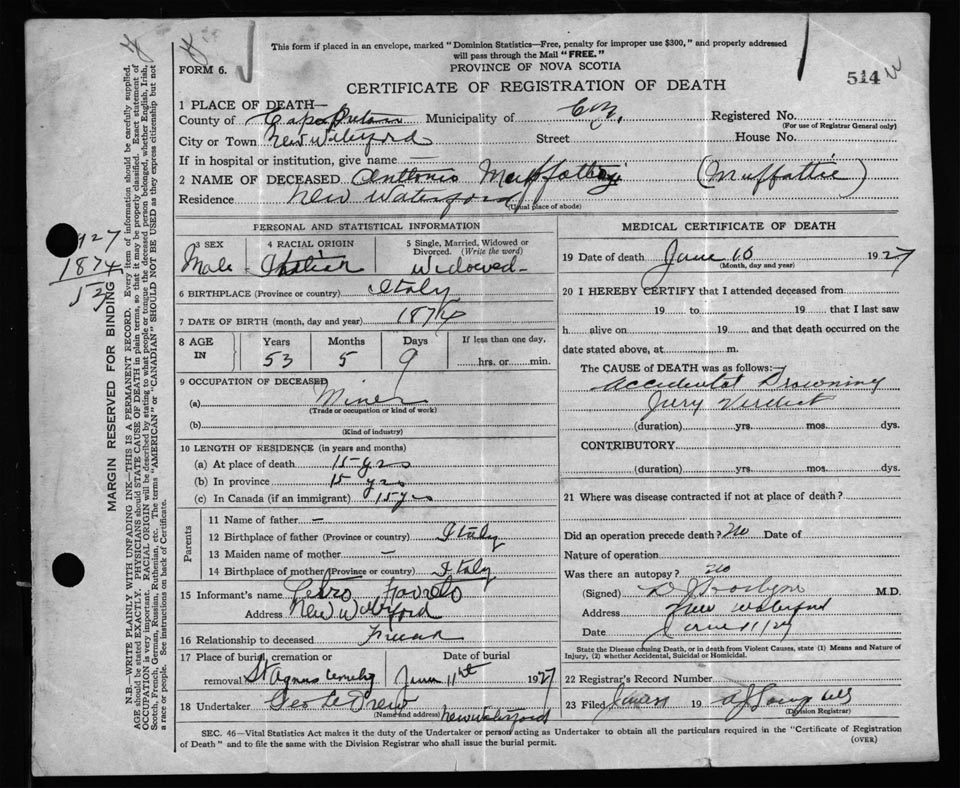 This form if placed in an envelope, marked "Dominion Statistics—Free, penalty for improper use $300," and properly addressed
will pass through the Mail "FREE."
FORM 6.
PROVINCE OF NOVA SCOTIA
514
CERTIFICATE OF REGISTRATION OF DEATH
1 PLACE OF DEATH—
County of Cape Breton Municipality of C.B. Registered No.
(For use of Registrar General only)
City or Town New Waterford Street House No.
If in hospital or institution, give name —
2 NAME OF DECEASED Antonio (Muffattie)
Residence New Waterford
(Usual place of abode)
PERSONAL AND STATISTICAL INFORMATION
3 SEX 4 RACIAL ORIGIN 5 Single, Married, Widowed or
Divorced. (Write the word)
Male Italian Widowed
6 BIRTHPLACE (Province or country) Italy
7 DATE OF BIRTH (month, day and year) 1874
8 AGE IN Years Months Days If less than one day,
53 5 9 hrs. or min.
9 OCCUPATION OF DECEASED
(a) Miner
(Trade or occupation or kind of work)
(b)
(Kind of industry)
10 LENGTH OF RESIDENCE (in years and months)
(a) At place of death 15 yrs
(b) In province 15 yrs
(c) In Canada (if an immigrant) 15 yrs
Parents
11 Name of father —
12 Birthplace of father (Province or country) Italy
13 Maiden name of mother —
14 Birthplace of mother (Province or country) Italy
15 Informant's name Petro
Address New Waterford
16 Relationship to deceased Friend
17 Place of burial, cremation or Date of burial
removal St Agnes Cemetery June 11th 1927
18 Undertaker Geo
(Name and address) New Waterford
MEDICAL CERTIFICATE OF DEATH
19 Date of death June 10 1927
(Month, day and year)
20 I HEREBY CERTIFY that I attended deceased from
19 to 19 that I last saw
h alive on 19 and that death occurred on the
date stated above, at m.
The CAUSE OF DEATH was as follows:—
Accidental Drowning
Jury Verdict
(duration) yrs. mos. dys.
CONTRIBUTORY.
(duration) yrs. mos. dys.
21 Where was disease contracted if not at place of death?
Did an operation precede death? No Date of
Nature of operation
Was there an autopsy? No
(Signed) M.D.
Address New Waterford
Date June 11/27
State the Disease causing Death, or in death from Violent Causes, state (1) Means and Nature of
Injury, (2) whether Accidental, Suicidal or Homicidal.
22 Registrar's Record Number
23 Filed 19
(Division Registrar)
SEC. 46—Vital Statistics Act makes it the duty of the Undertaker or person acting as Undertaker to obtain all the particulars required in the "Certificate of Registration
of Death" and to file the same with the Division Registrar who shall issue the burial permit.
(OVER)
1927
1874
MARGIN RESERVED FOR BINDING
N.B.—WRITE PLAINLY WITH UNFADING INK—THIS IS A PERMANENT RECORD. Every item of information should be carefully supplied.
AGE should be stated EXACTLY. PHYSICIANS should STATE CAUSE OF DEATH in plain terms, so that it may be properly classified. Exact statement of
OCCUPATION is very important. RACIAL ORIGIN will be described by stating to what people or tongue the deceased person belonged, whether English, Irish,
Scotch, French, German, Russian, Ruthenian, etc. The terms "AMERICAN" or "CANADIAN" SHOULD NOT BE USED as they express citizenship but not
a race or people. See instructions on back of Certificate.